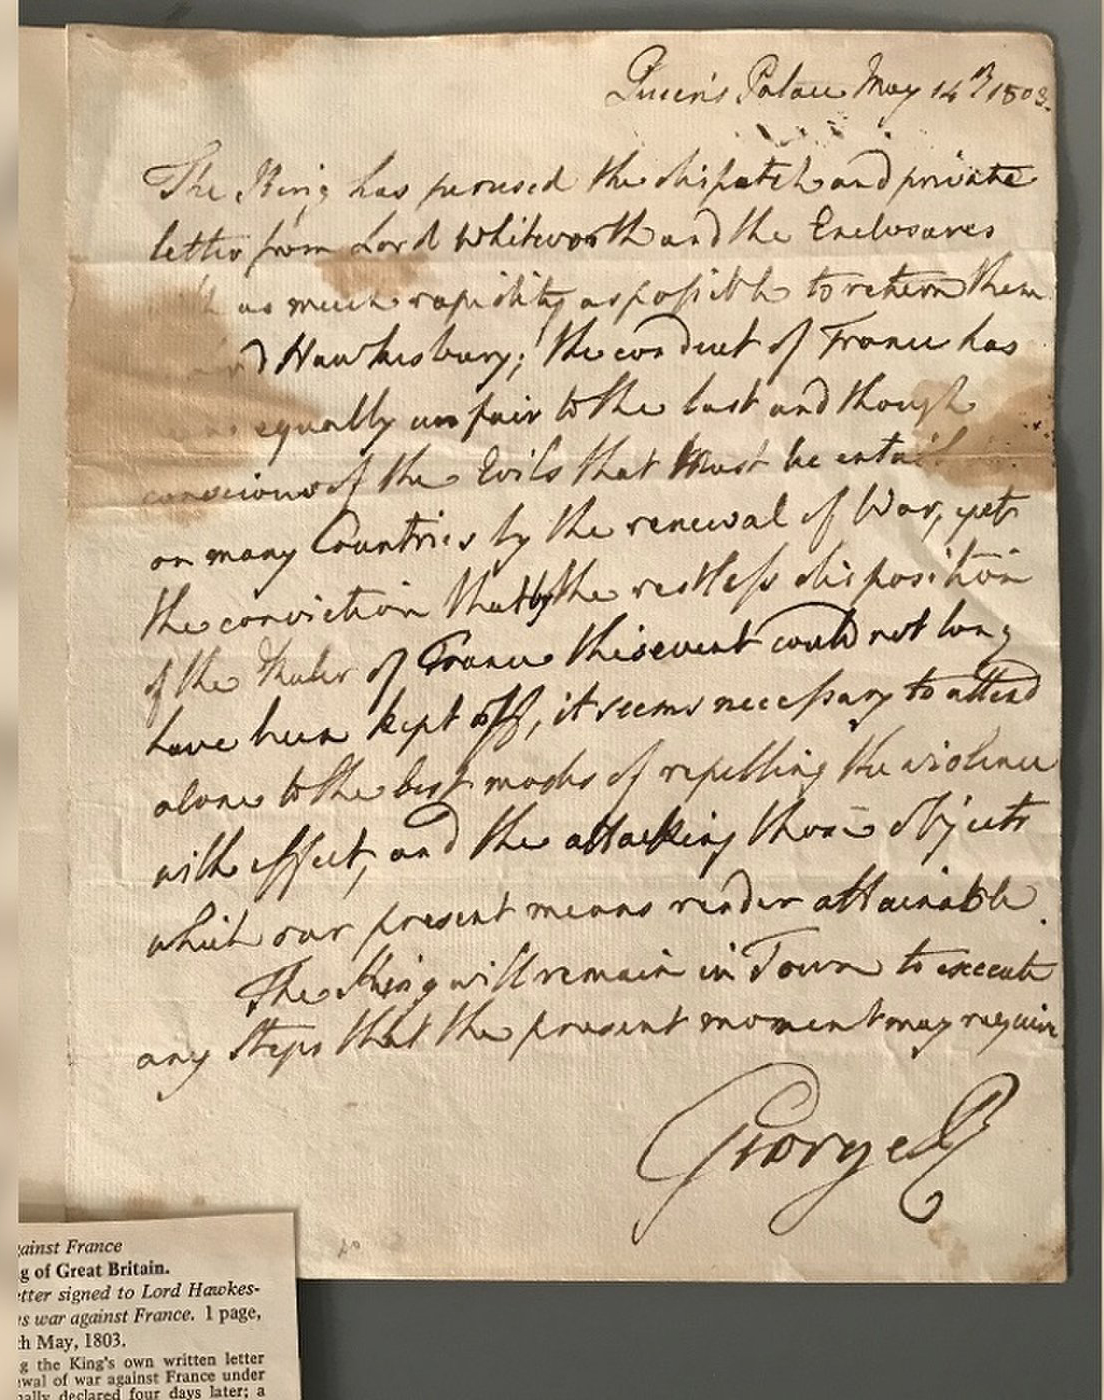 Queen's Palace May 14th 1803.
The King has perused the dispatch and private
letter from Lord Whitworth and the Enclosures
as much rapidity as possible to return them
Hawkesbury; the conduct of France has
equally unfair to the last and though
conscious of the Evils that must be entail
on many Countries by the renewal of War, yet
the conviction that by the restless disposition
of the Ruler of France this event could not long
have been kept off, it seems necessary to attend
alone to the best modes of repelling the violence
with effect, and the attacking those objects
which our present means render attainable.
The King will remain in Town to execute
any Steps that the present moment may require
George R
gainst France
g of Great Britain.
etter signed to Lord Hawkes-
s war against France. 1 page,
th May, 1803.
g the King's own written letter
ewal of war against France under
nally declared four days later; a